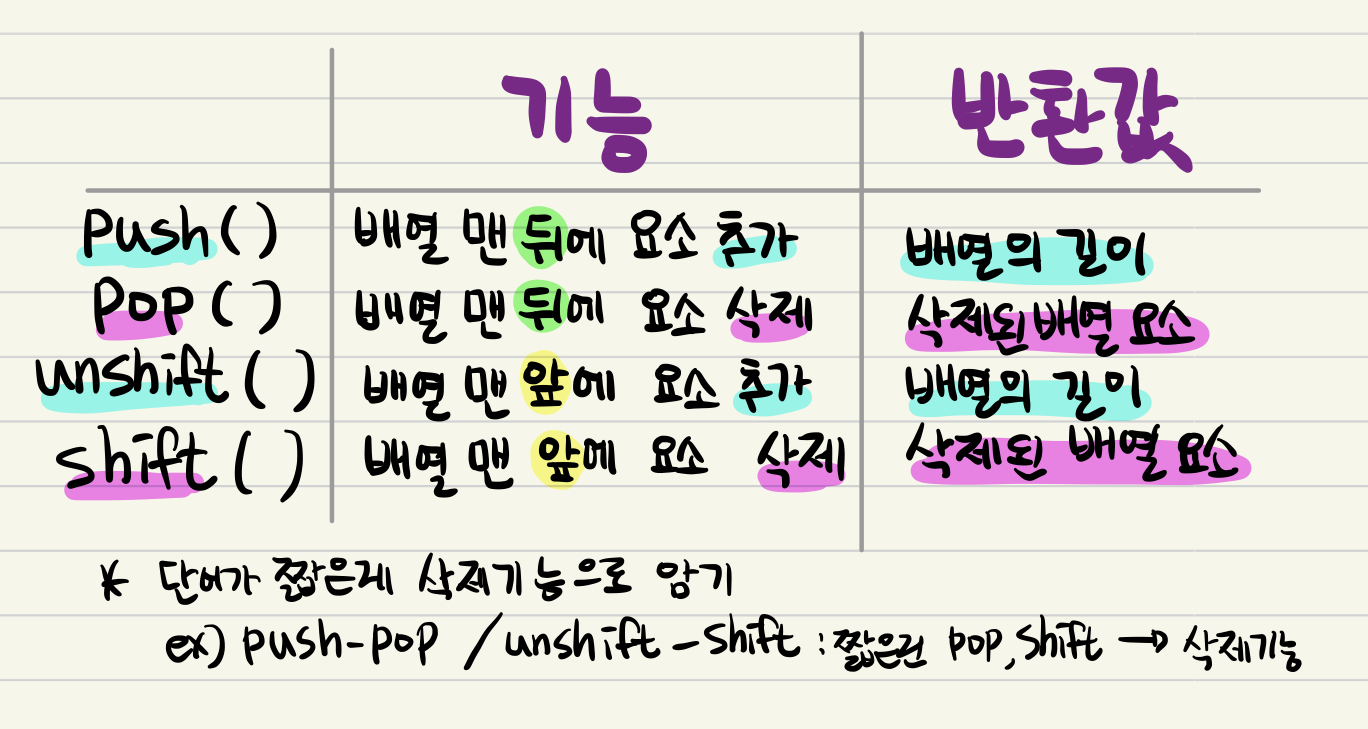 기능 반환값
push() 배열 맨 뒤에 요소 추가 배열의 길이
pop() 배열 맨 뒤에 요소 삭제 삭제된 배열 요소
unshift() 배열 맨 앞에 요소 추가 배열의 길이
shift() 배열 맨 앞에 요소 삭제 삭제된 배열 요소
* 단어가 짧은게 삭제기능으로 암기
ex) push-pop / unshift-shift : 짧은건 pop, shift → 삭제기능